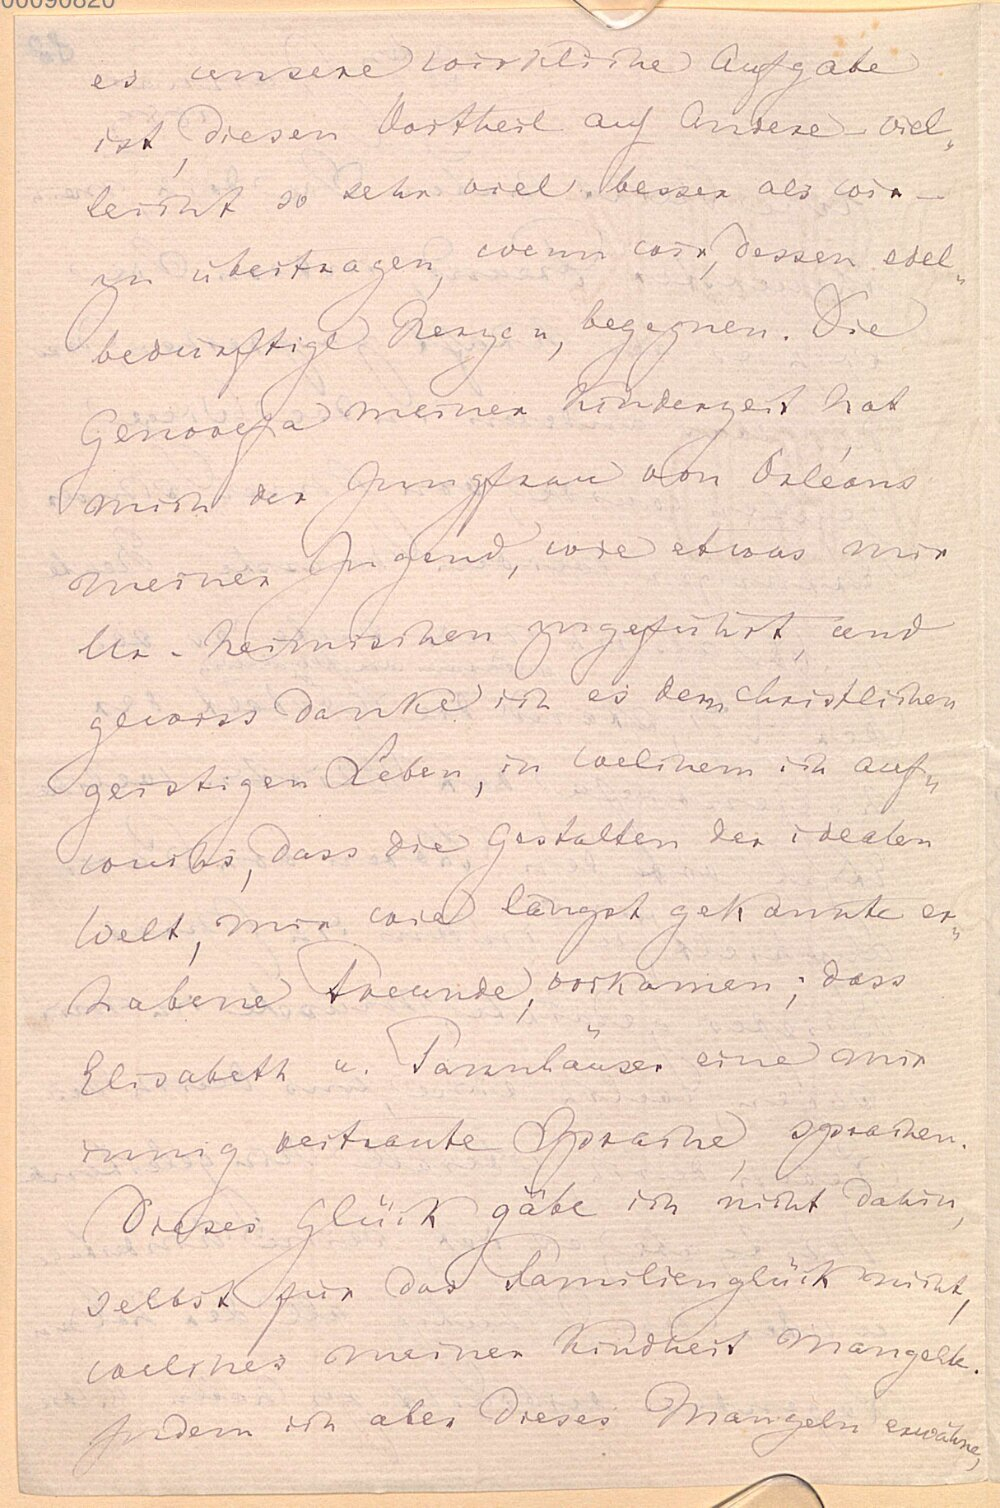 00090820
es unsere wirkliche Aufgabe
ist, diesen Vortheil auf Andere – viel„
leicht so sehr viel besser als wir –
zu übertragen, wenn wir, dessen edel„
bedürftige Herzen, begegnen. Die
Genovefa meiner Kinderzeit hat
mich der Jungfrau von Orléans
meiner Jugend, wie etwas mir
Ur-heimischen zugeführt, und
gewiss danke ich es dem christlichen
geistigen Leben, in welchem ich auf„
wuchs, dass die Gestalten der idealen
Welt, mir wie längst gekannte er„
habene Freunde, vorkamen; dass
Elisabeth u. Tannhäuser eine mir
innig vertraute Sprache, sprachen.
Dieses Glück gäbe ich nicht dahin,
selbst für das Familienglück nicht,
welches meiner Kindheit mangelte.
Indem ich aber dieses Mangeln erwähne,